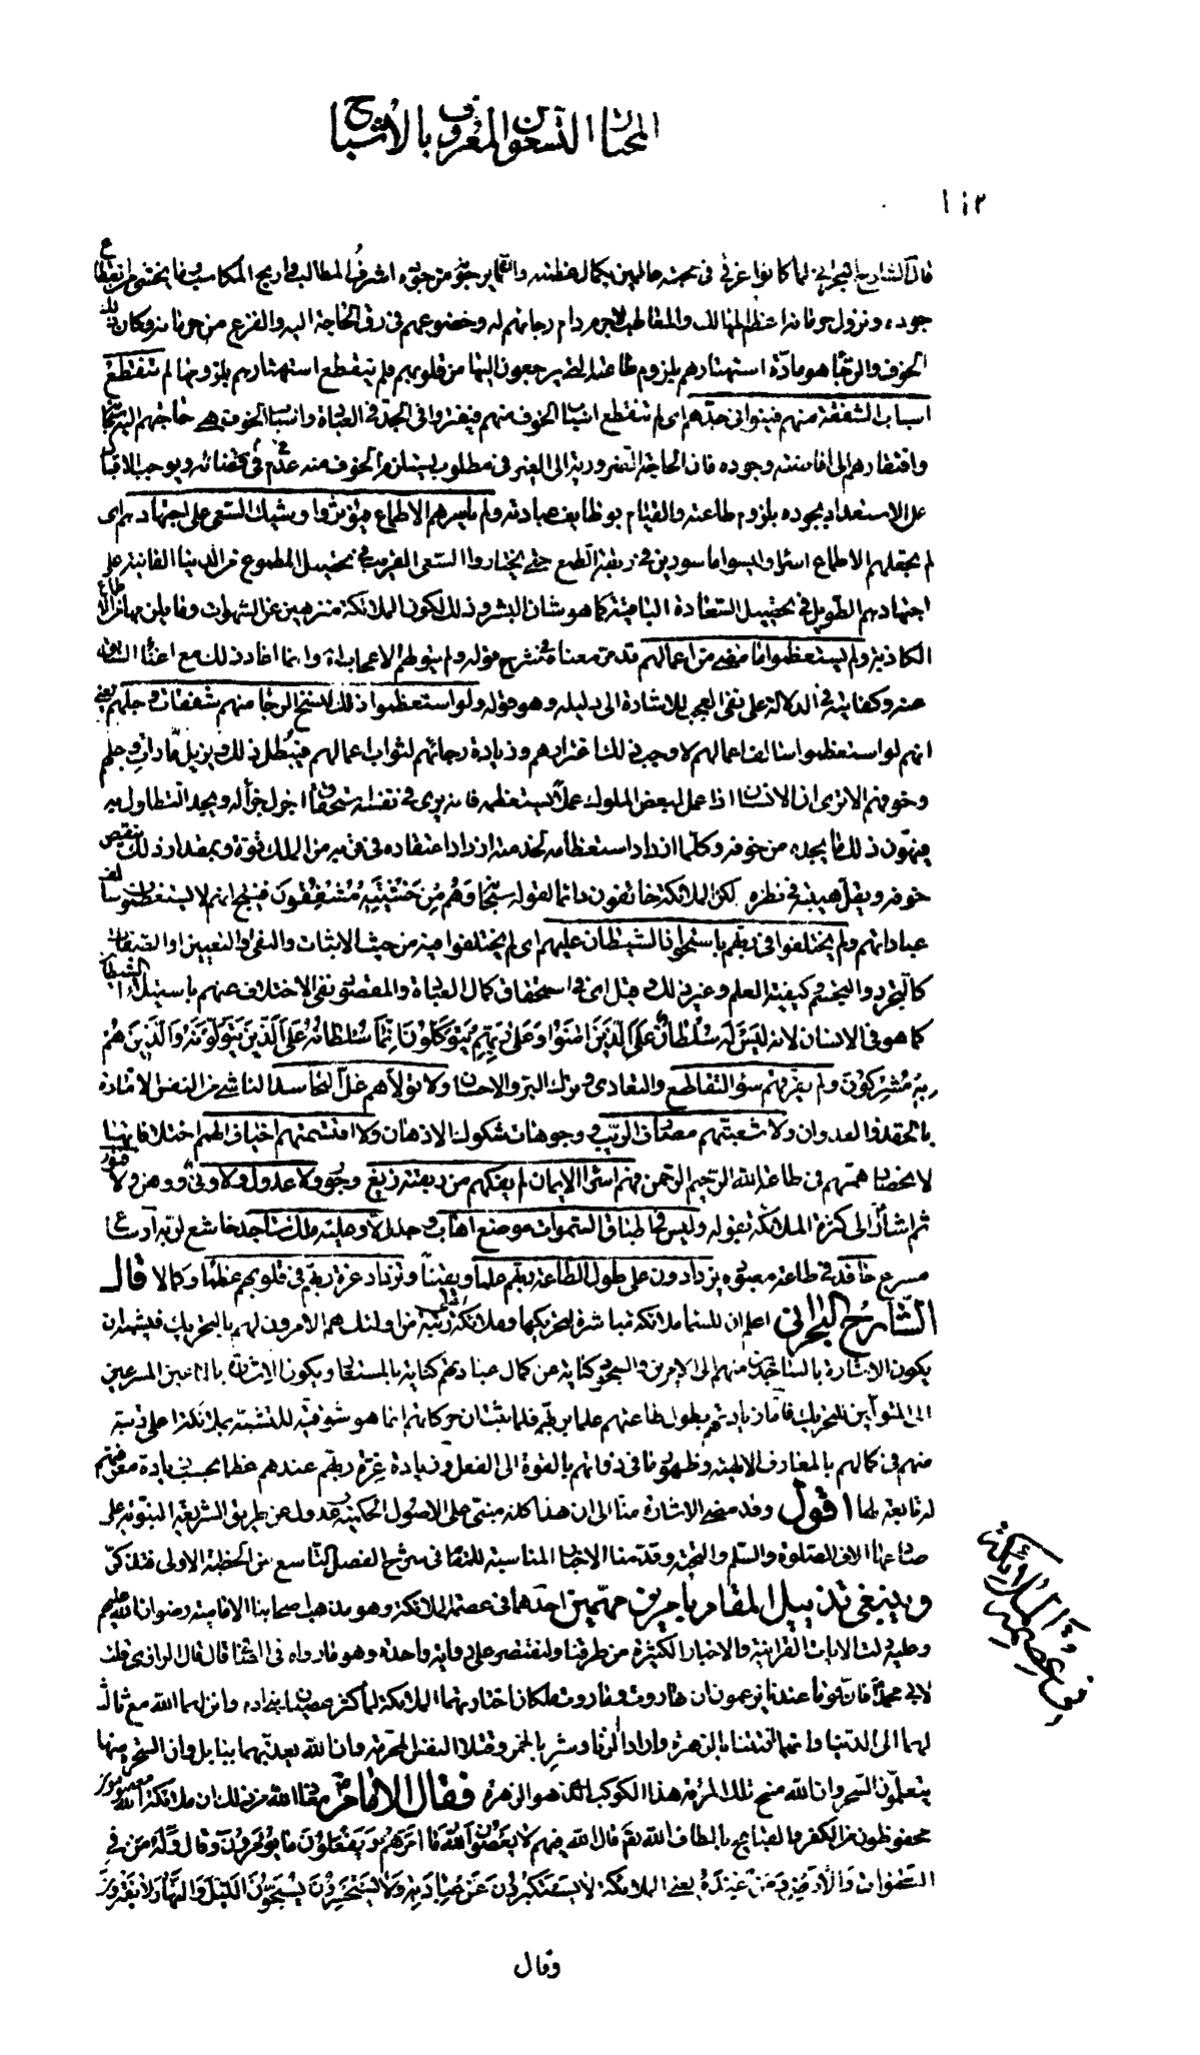 المختار التسعون المعروف بالأشباح
١١٢
قال الشارح البحراني لما كانوا غرقى في محبته عالمين بكمال عظمته وأن ما يرجونه من جوده اشرف المطالب واربح المكاسب وما يخشى من انقطاع
جوده ونزول حرمانه اعظم المهالك والمعاطب لا جرم دام رجائهم له وخضوعهم في رق الحاجة اليه والفزع من حرمانه وكان ذلك
الخوف والرجاء هو مادة استهتارهم بلزوم طاعته التي يرجعون اليها من قلوبهم فلم ينقطع استهتارهم بلزومها لم تنقطع
اسباب الشفقة منهم فينوا في جدهم اي لم تنقطع اسباب الخوف منهم فيفتروا في الجد في العبادة واسباب الخوف هي حاجتهم اليه
وافتقارهم إلى افاضته وجوده فان الحاجة الضرورية إلى الغير في مطلوب يستلزم الخوف منه عدم في قضائه ويوجب الاقبال
على الاستعداد بجوده بلزوم طاعته والقيام بوظايف عبادته ولم ياسرهم الاطماع فيؤثروا وشيك السعي على اجتهادهم اي
لم يجعلهم الاطماع اسراء وليسوا مأسورين في ربقة الطمع حتى يختاروا السعي القريب في تحصيل المطموع من الدنيا الفانية على
اجتهادهم الطويل في تحصيل السعادة الباقية كما هو شأن البشر وذلك لكون الملائكة منزهين عن الشهوات وما يلزمها من الاطماع
الكاذبة ولم يستعظموا ما مضى من اعمالهم قد مر معناه في شرح قوله ولم يتولهم الاعجاب وانما اعاد ذلك مع اغناء السابق
عنه وكفايته في الدلالة على نفي العجب للاشارة الى دليله وهو قوله ولو استعظموا ذلك لنسخ الرجاء منهم شفقات وجلهم يعني
انهم لو استعظموا سالف اعمالهم لاوجب ذلك اغترارهم وزيادة رجائهم لثواب اعمالهم فيبطل ذلك ويزيل مادة وجلهم
وخوفهم الا ترى ان الانسان اذا عمل لبعض الملوك عملا يستعظمه فانه يرى في نفسه استحقاق اجزل جزاء له ويجد التطاول به
فيهون ذلك ما يجده من خوفه وكلما ازداد استعظامه لخدمته ازداد اعتقاده في قربه من الملك قوة وبمقدار ذلك ينقص
خوفه ويقل هيبته في نظره لكن الملائكة خائفون دائما لقوله سبحانه وهم من خشيته مشفقون فينتج انهم لا يستعظمون سالف
عباداتهم ولم يختلفوا في ربهم باستحواذ الشيطان عليهم اي لم يختلفوا فيه من حيث الاثبات والنفي والتعيين او الصفات
كالتجرد والتجسم وكيفية العلم وغير ذلك وقيل اي في استحقاق كمال العبادة والمقصود نفي الاختلاف عنهم باستيلاء الشيطان
كما هو في الانسان لانه ليس له سلطان على الذين امنوا وعلى ربهم يتوكلون انما سلطانه على الذين يتولونه والذين هم
به مشركون ولم يفرقهم سوء التقاطع والتعادي وترك البر والاحسان ولا تولاهم غل التحاسد الناشي من النفس الامارة
بالحقد والعدوان ولا شعبتهم مصارف الريب ووجوهات شكوك الاذهان ولا اقتسمتهم اخياف الهمم اي اختلافاتها
لانحصار همتهم في طاعة الله الرحيم الرحمن فهم اسراء الايمان لم يفكهم من ربقته زيغ وجور ولا عدول ولا ونى ووهن ولا فتور
ثم اشار إلى كثرة الملائكة بقوله وليس في اطباق السموات موضع اهاب وجلد الا وعليه ملك ساجد خاشع لربه او ساع
مسرع حافد في طاعة معبوده يزدادون على طول الطاعة بربهم علما ويقينا وتزداد عزة ربهم في قلوبهم عظما وكمالا قال
الشارح البحراني اعلم ان للسماء ملائكة مباشرة لتحريكها وملائكة اعلى رتبة من اولئك هم الآمرون لهم بالتحريك فيشبه ان
يكون الاشارة بالساجدين منهم الى الآمرين والسجود كناية عن كمال عبادتهم كناية بالمستعار ويكون الاشارة بالساعين المسرعين
الى المتولين للتحريك فاما زيادتهم بطول طاعتهم علما بربهم فلما ثبت ان حركاتهم انما هو شوقية للتشبه بملائكة اعلى رتبة
منهم في كمالهم بالمعارف الالهية وظهور ما في ذواتهم بالقوة الى الفعل وزيادة عزة ربهم عندهم عظما بحسب زيادة معرفتهم
له تابعة لها اقول وقد مضى الاشارة منا الى ان هذا كله مبني على الاصول الحكمية وعدول عن طريق الشريعة النبوية على
صادعها آلاف الصلوة والسلم والتحية وقد قدمنا الاخبار المناسبة للمقام في شرح الفصل التاسع من الخطبة الاولى فتذكر
وينبغي تذييل المقام بامرين مهمين احدهما في عصمة الملائكة وهو مذهب اصحابنا الامامية رضوان الله عليهم
وعليه دلت الايات القرانية والاخبار الكثيرة من طرقنا ولنقتصر على رواية واحدة وهو ما رواه في الصافي قال قال الراوي قلت
لابي محمد فان قوما عندنا يزعمون ان هاروت وماروت ملكان اختارتهما الملائكة لما كثر عصيان بني ادم وانزلهما الله مع ثالث
لهما الى الدنيا وانهما افتتنا بالزهرة وارادا الزنا وشربا الخمر وقتلا النفس المحرمة وان الله يعذبهما ببابل وان السحرة منهما
يتعلمون السحر وان الله مسخ تلك المرئة هذا الكوكب الذي هو الزهرة فقال الامام معاذ الله من ذلك ان ملائكة الله معصومون
محفوظون من الكفر والقبايح بالطاف الله تع قال الله فيهم لا يعصون الله ما امرهم ويفعلون ما يؤمرون وقال وله من في
السموات والارض ومن عنده يعني الملائكة لا يستكبرون عن عبادته ولا يستحسرون يسبحون الليل والنهار لا يفترون
وقال
في عصمة الملائكة